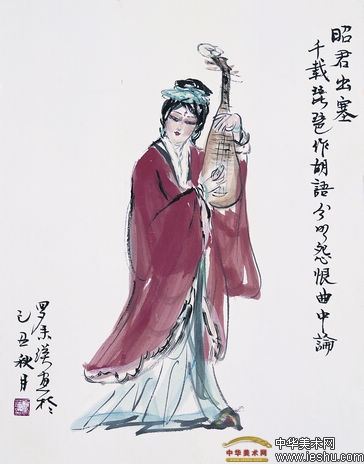 昭君出塞
千载琵琶作胡語分明怨恨曲中論
己丑秋月
中华美术网
中华美术网
www.ieshu.com